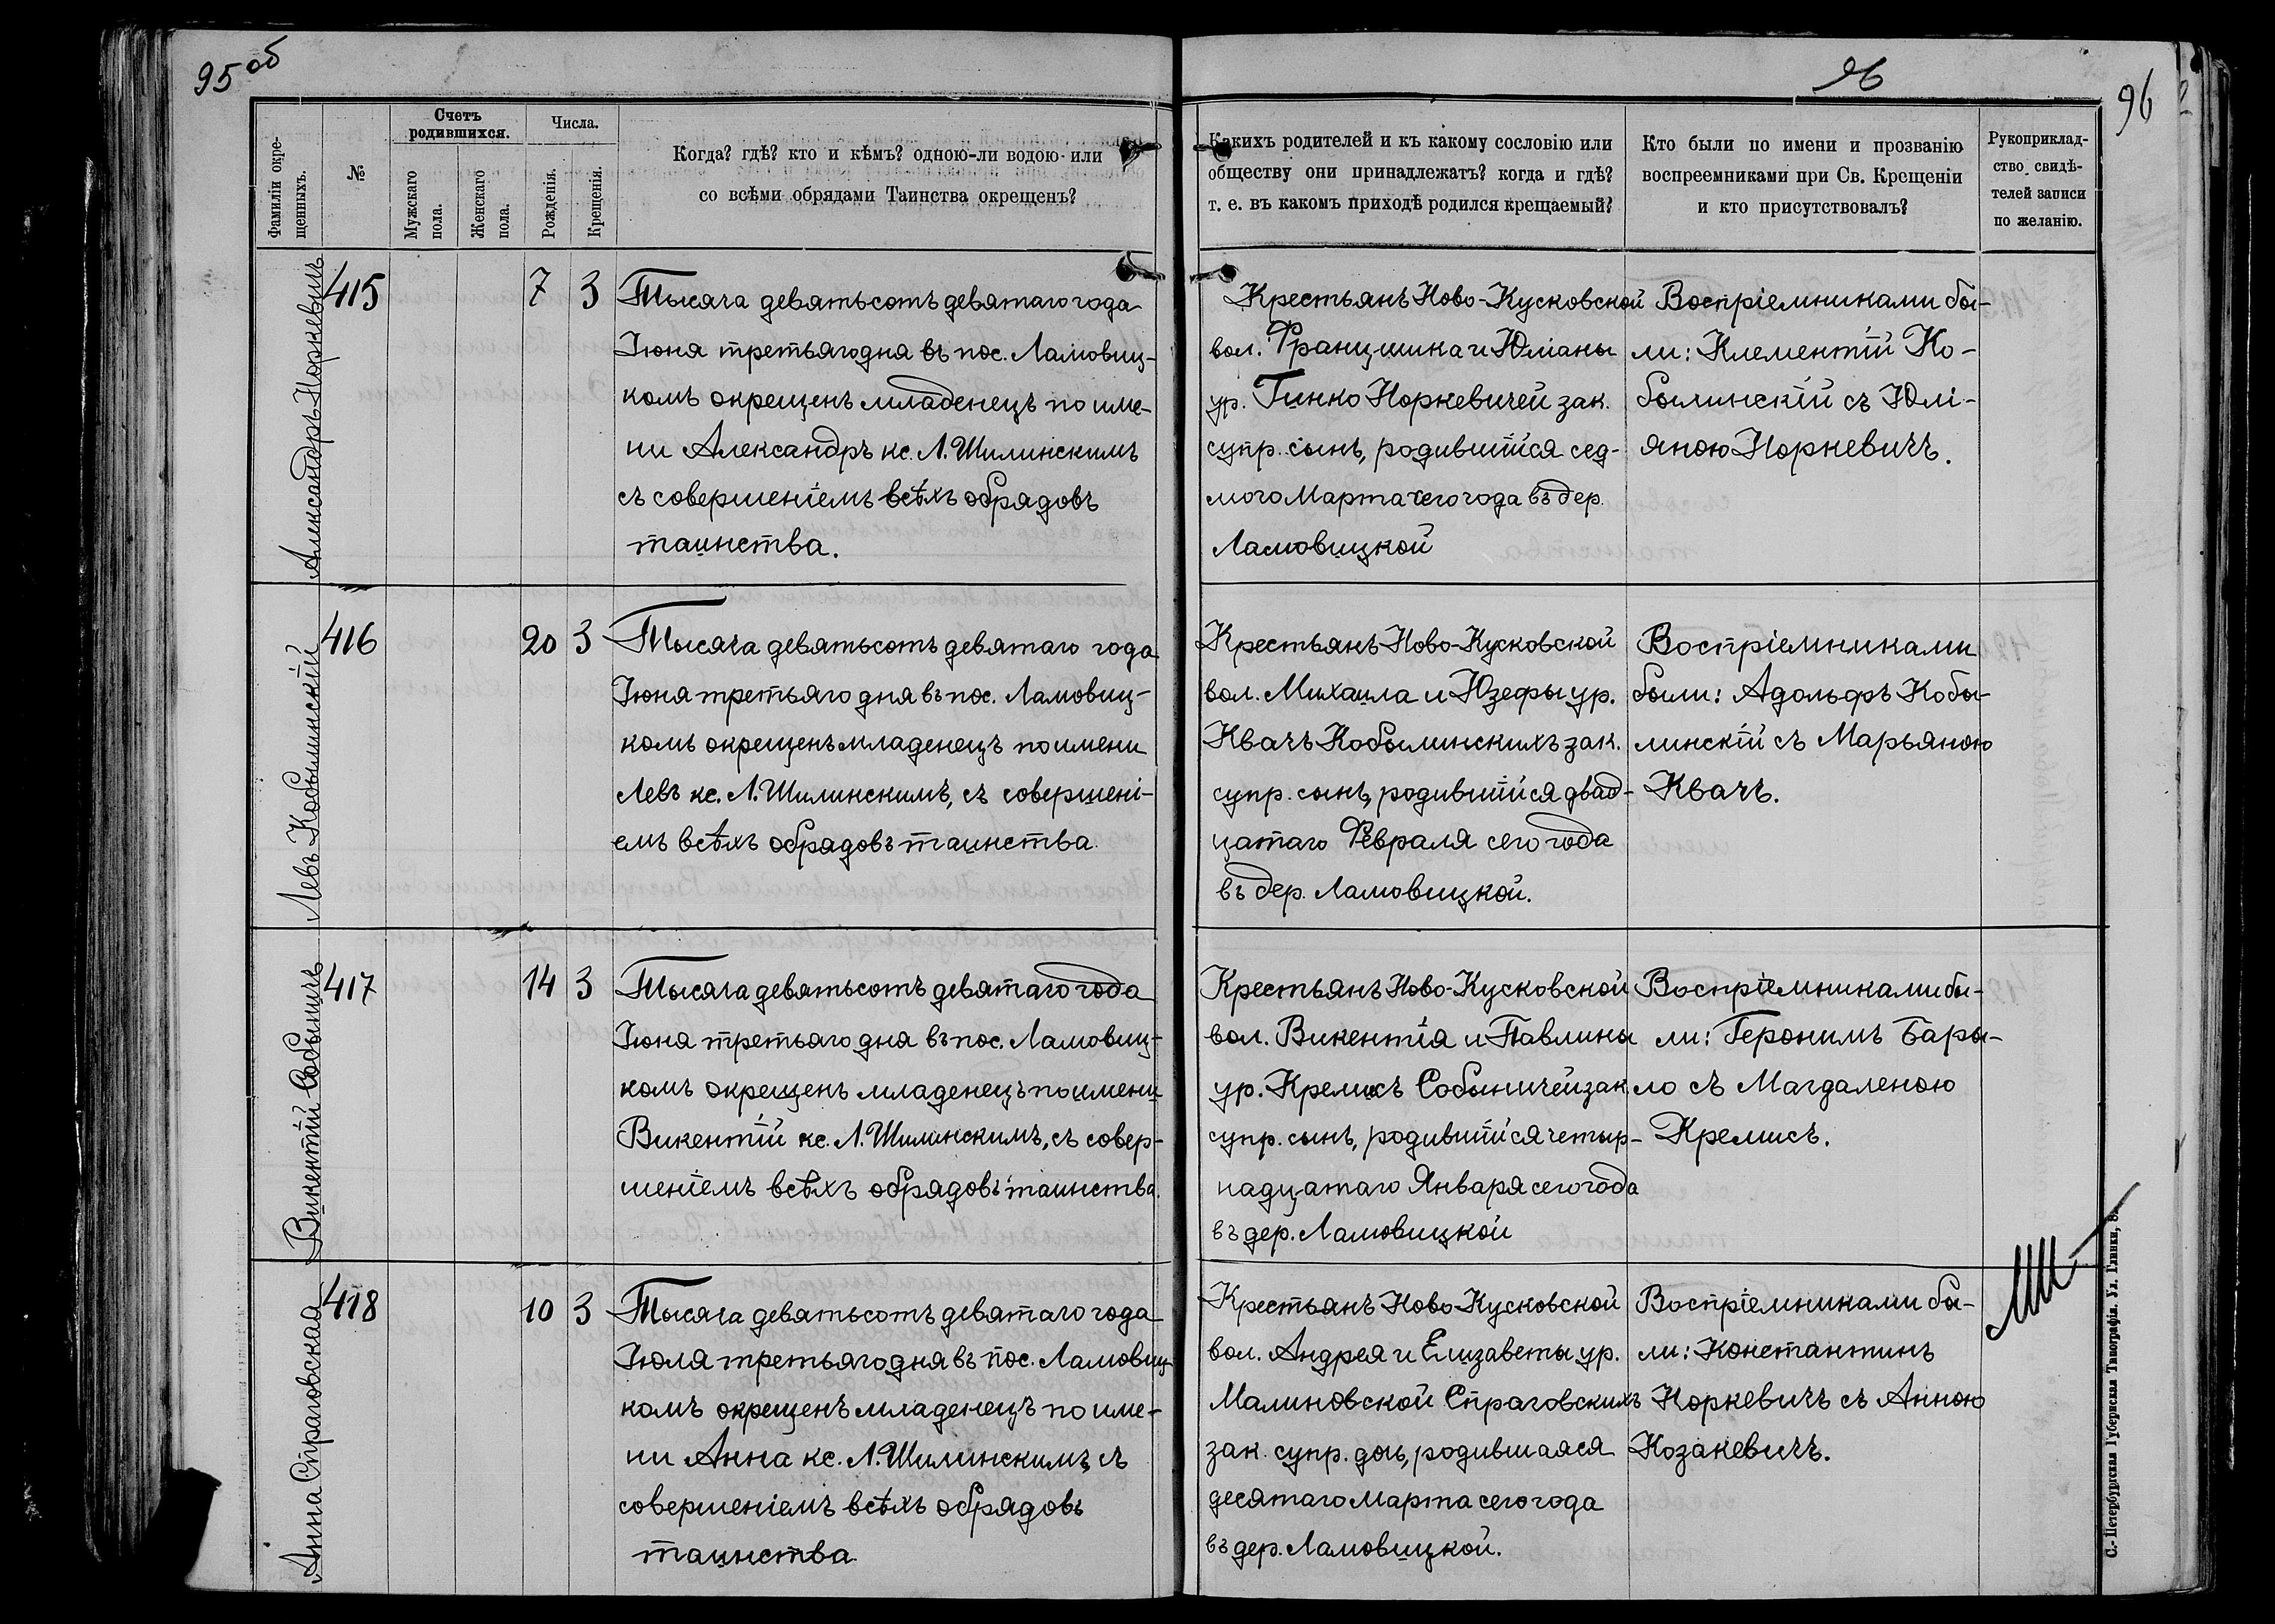 95 об
96
96
Фамиліи окре-
щенныхъ.
№
Счетъ
родившихся.
Мужскаго
пола.
Женскаго
пола.
Числа.
Рожденія.
Крещенія.
Когда? гдѣ? кто и кѣмъ? одною-ли водою или
со всѣми обрядами Таинства окрещенъ?
Какихъ родителей и къ какому сословію или
обществу они принадлежатъ? когда и гдѣ?
т. е. въ какомъ приходѣ родился крещаемый?
Кто были по имени и прозванію
воспреемниками при Св. Крещеніи
и кто присутствовалъ?
Рукоприклад-
ство свидѣ-
телей записи
по желанію.
Александръ Норкевичъ
415
7
3
Тысяча девятьсотъ девятаго года
Іюня третьяго дня въ пос. Ламовиц-
комъ окрещенъ младенецъ по име-
ни Александръ кс. Л. Шилинскимъ
съ совершеніемъ всѣхъ обрядовъ
таинства.
Крестьянъ Ново-Кусковской
вол. Францишка и Юліаны
ур. Гинко Норкевичей зак.
супр. сынъ, родившійся сед-
мого Марта сего года въ дер.
Ламовицкой
Воспріемниками бы-
ли: Клементій Ко-
былинскій съ Юлі-
яною Норкевичъ.
Левъ Кобылинскій
416
20
3
Тысяча девятьсотъ девятаго года
Іюня третьяго дня въ пос. Ламовиц-
комъ окрещенъ младенецъ по имени
Левъ кс. Л. Шилинскимъ, съ совершені-
емъ всѣхъ обрядовъ таинства.
Крестьянъ Ново-Кусковской
вол. Михаила и Юзефы ур.
Квачъ Кобылинскихъ зак.
супр. сынъ, родившійся двад-
цатаго Февраля сего года
въ дер. Ламовицкой.
Воспріемниками
были: Адольфъ Кобы-
линскій съ Марьяною
Квачъ.
Викентій Собыничъ
417
14
3
Тысяча девятьсотъ девятаго года
Іюня третьяго дня въ пос. Ламовиц-
комъ окрещенъ младенецъ по имени
Викентій кс. Л. Шилинскимъ, съ совер-
шеніемъ всѣхъ обрядовъ таинства.
Крестьянъ Ново-Кусковской
вол. Викентія и Павлины
ур. Кремисъ Собыничей зак.
супр. сынъ, родившійся четыр-
надцатаго Января сего года
въ дер. Ламовицкой
Воспріемниками бы-
ли: Геронимъ Бары-
ло съ Магдаленою
Кремисъ.
Анна Страговская
418
10
3
Тысяча девятьсотъ девятаго года
Іюля третьяго дня въ пос. Ламовиц
комъ окрещенъ младенецъ по име-
ни Анна кс. Л. Шилинскимъ, съ
совершеніемъ всѣхъ обрядовъ
таинства
Крестьянъ Ново-Кусковской
вол. Андрея и Елизаветы ур.
Малиновской Страговскихъ
зак. супр. дочь, родившаяся
десятаго Марта сего года
въ дер. Ламовицкой.
Воспріемниками бы-
ли: Константинъ
Норкевичъ съ Анною
Козакевичъ.
С.-Петербургская Губернская Типографія. Ул. Глинки, 8.